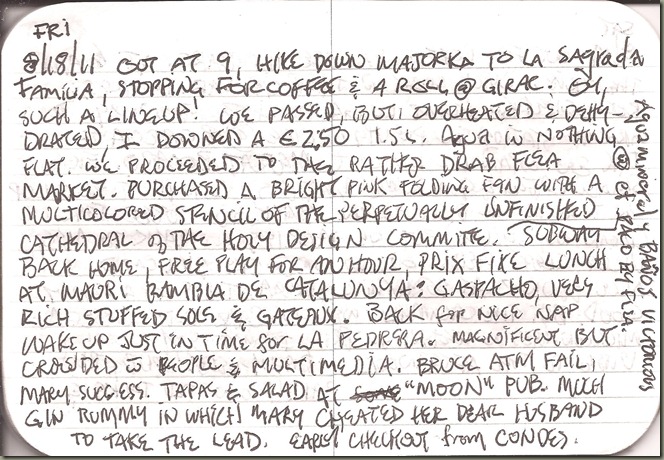 FRI
8/18/11 GOT AT 9, HIKE DOWN MAJORKA TO LA SAGRADA
FAMILIA, STOPPING FOR COFFEE & A ROLL @ GIRAC. OY,
SUCH A LINEUP! WE PASSED, BUT, OVERHEATED & DEHY-
DRATED, I DOWNED A € 2,50 1.5 L. AQUA IN NOTHING
FLAT. WE PROCEEDED TO THE RATHER DRAB FLEA
MARKET. PURCHASED A BRIGHT PINK FOLDING FAN WITH A
MULTICOLORED STENCIL OF THE PERPETUALLY UNFINISHED
CATHEDRAL OF THE HOLY DESIGN COMMITTE. SUBWAY
BACK HOME, FREE PLAY FOR AN HOUR, PRIX FIXE LUNCH
AT MAURI RAMBLA DE CATALUNYA: GASPACHO, VERY
RICH STUFFED SOLE & GATEAUX. BACK FOR NICE NAP
WAKE UP JUST IN TIME FOR LA PEDRERA. MAGNIFICENT BUT
CROWDED PEOPLE & MULTIMEDIA. BRUCE ATM FAIL,
MARY SUCCESS. TAPAS & SALAD AT "MOON" PUB. MUCH
GIN RUMMY IN WHICH MARY CHEATED HER DEAR HUSBAND
TO TAKE THE LEAD. EARLY CHECKOUT FROM CONDES.
AQUA MINORAL Y BAÑOS VICTORIOUS
@ BY FLEA.